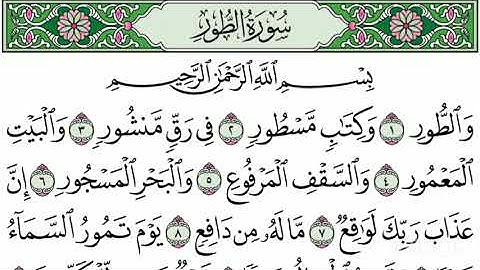 سُورَةُ الطُّورِ
بِسْمِ ٱللَّهِ ٱلرَّحْمَٰنِ ٱلرَّحِيمِ
وَٱلطُّورِ ١ وَكِتَٰبٍ مَّسْطُورٍ ٢ فِى رَقٍّ مَّنشُورٍ ٣ وَٱلْبَيْتِ
ٱلْمَعْمُورِ ٤ وَٱلسَّقْفِ ٱلْمَرْفُوعِ ٥ وَٱلْبَحْرِ ٱلْمَسْجُورِ ٦ إِنَّ
عَذَابَ رَبِّكَ لَوَٰقِعٌ ٧ مَّا لَهُۥ مِن دَافِعٍ ٨ يَوْمَ تَمُورُ ٱلسَّمَآءُ